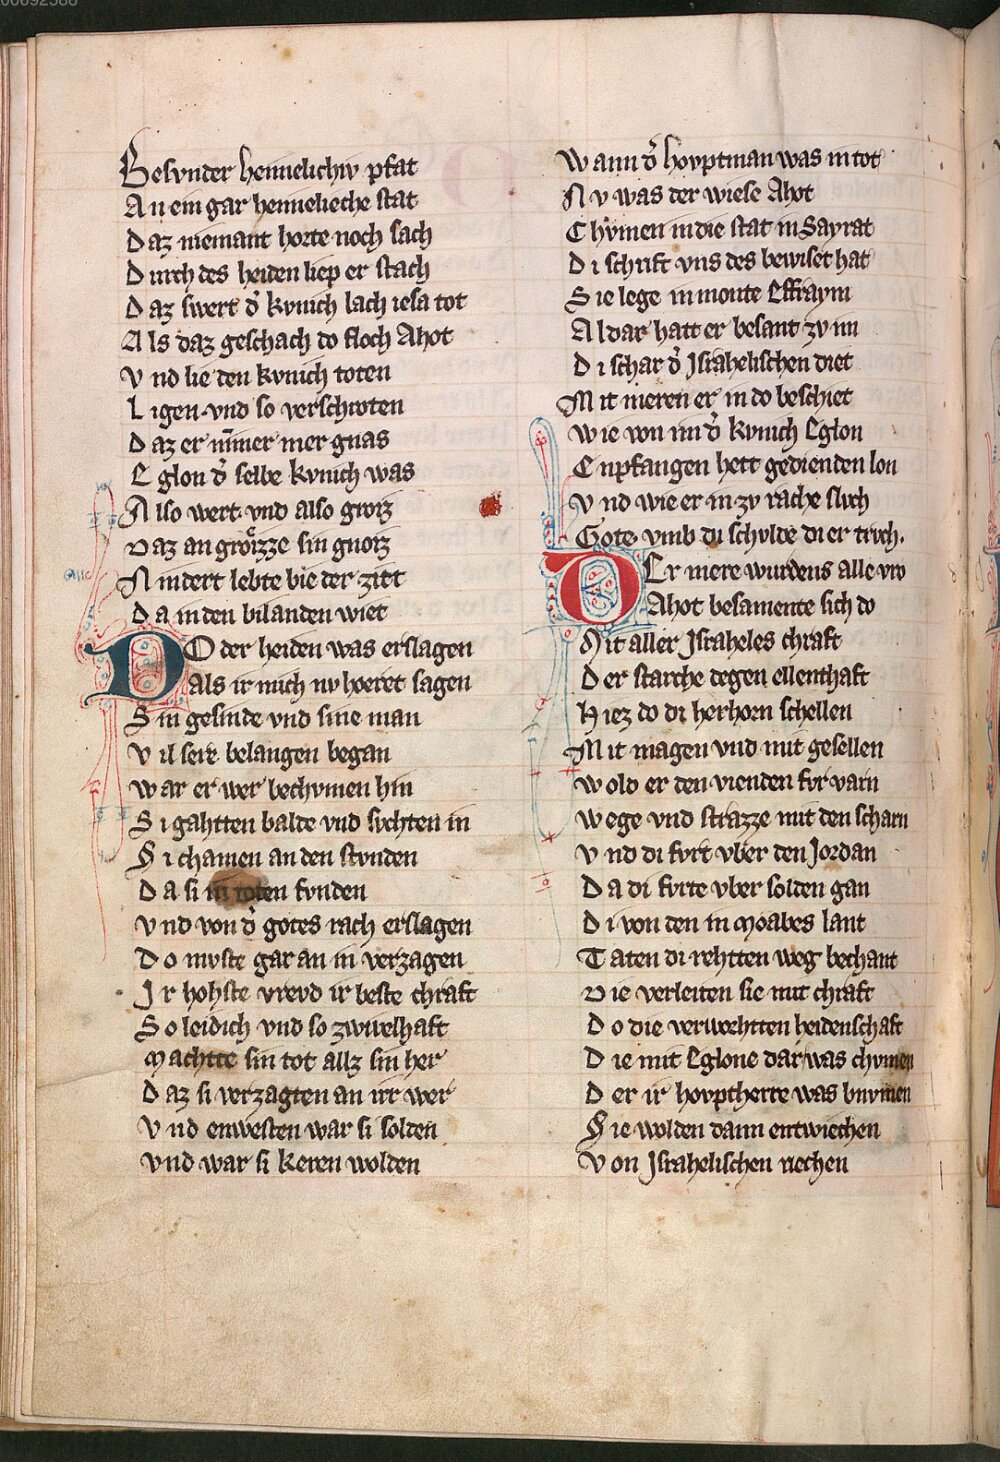 00092588
Besvnder hennelichiv pfat
An ein gar hennelieche stat
Daz niemant horte noch sach
Durch des heiden liep er stach
Daz swert d̾ kvnich lach iesa tot
Als daz geschach do floch Ahot
Vnd lie den kvnich toten
Ligen vnd so verschroten
Daz er nim̄er mer gnas
Eglon d̾ selbe kvnich was
Also wert vnd also groz
Daz an grözze sin gnoz
Nindert lebte bie der zitt
Da in den bilanden wiet
DO der heiden was erslagen
Als ir mich nv hoeret sagen
Sin gesinde vnd sine man
Vil sere belangen began
War er wer bechvmen hin
Si gahtten balde vnd svchten in
Si chamen an den stvnden
Da si in toten fvnden
Vnd von d̾ gotes rach erslagen
Do mvste gar an in verzagen
Ir hohste vrevd ir beste chraft
So leidich vnd so zwivelhaft
Machtte sin tot allz sin her
Daz si verzagten an irr wer
Vnd enwesten war si solden
Vnd war si keren wolden
Wann d̾ hovptman was in tot
Nv was der wiese Ahot
Chvmen in die stat in Sayrat
Di schrift vns des bewiset hat
Sie lege in monte Effraym
Aldar hatt er besant zv im
Di schar d̾ Israhelischen diet
Mit meren er in do beschiet
Wie von im d̾ kvnich Eglon
Enpfangen hett gedienden lon
Vnd wie er in zv rache slvch
Gote vmb di schvlde di er trvch.
DEr mere wurdens alle vro
Ahot besamente sich do
Mit aller Israheles chraft
Der starche degen ellenthaft
Hiez do di herhorn schellen
Mit magen vnd mit gesellen
Wold er den vienden fvr varn
Wege vnd strazze mit den scharn
Vnd di fvrt vber den Jordan
Da di fvrte vber solden gan
Di von den in Moabes lant
Taten di rehtten weg bechant
Die verleiten sie mit chraft
Do die verworhtten heidenschaft
Die mit Eglone dar was chvmen
Der ir hovptherre was bnvmen
Sie wolden dann entwiechen
Von Israhelischen riechen